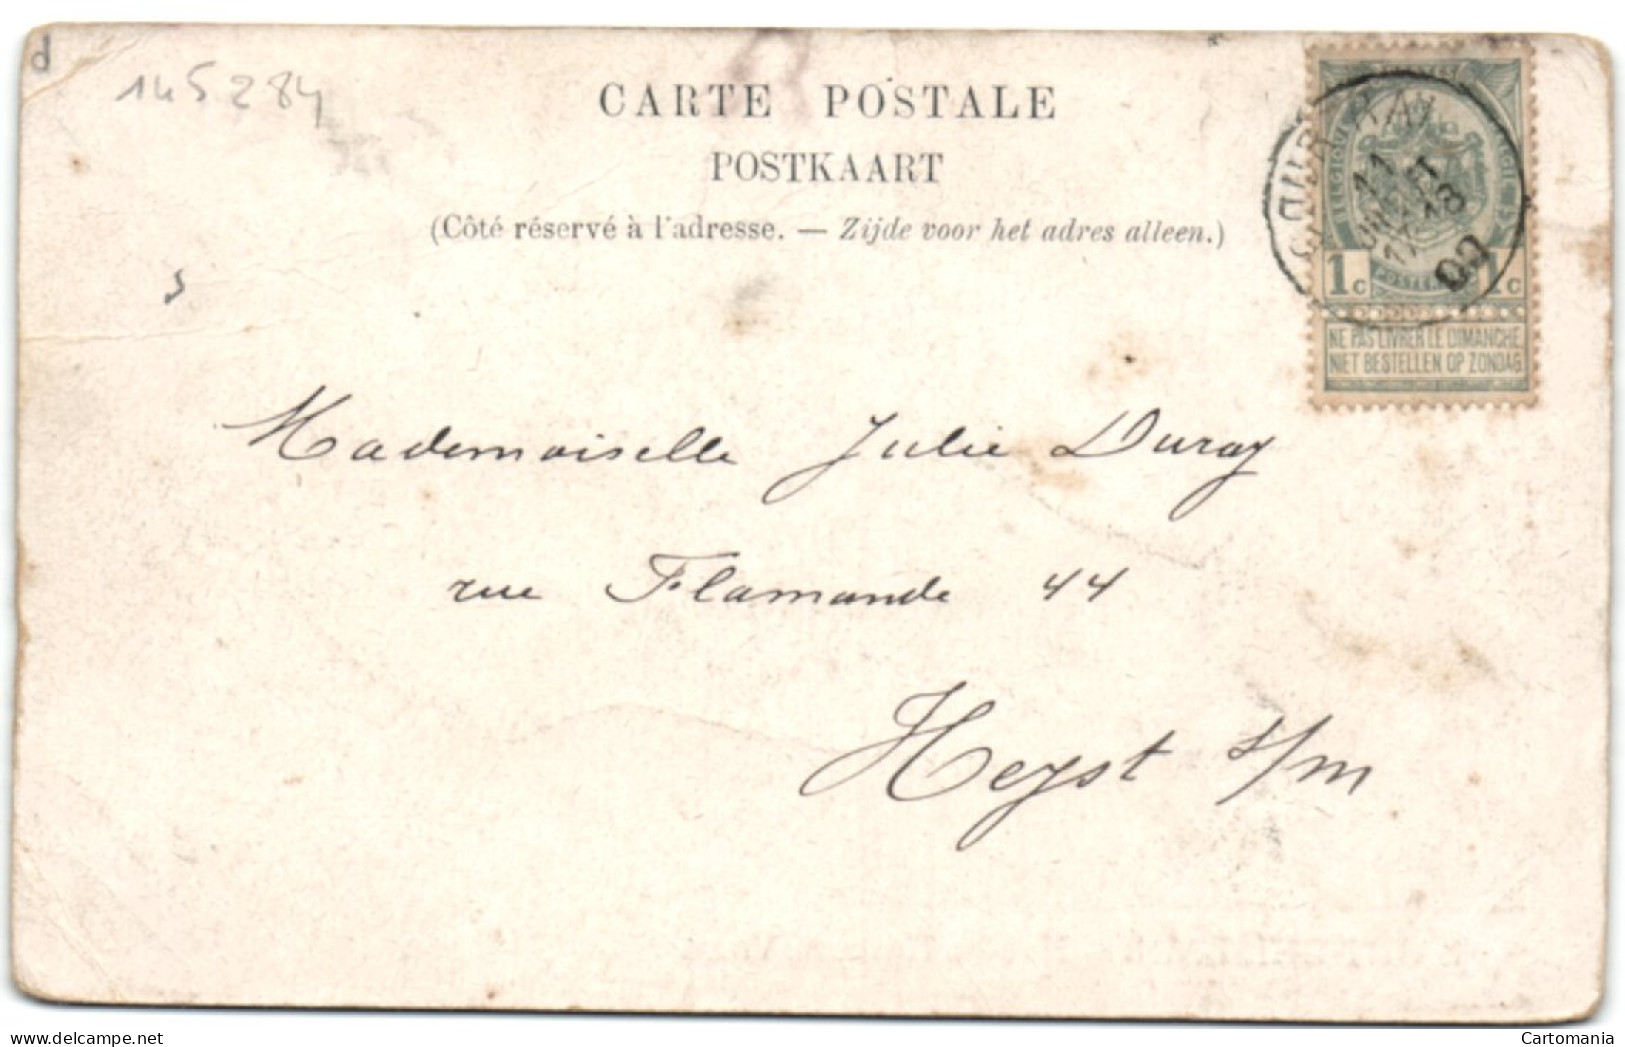 d
145284
CARTE POSTALE
POSTKAART
(Côté réservé à l'adresse. — Zijde voor het adres alleen.)
COURTRAI
11
18
00
BELGIQUE BELGIË
POSTERIJEN
1c 1c
NE PAS LIVRER LE DIMANCHE
NIET BESTELLEN OP ZONDAG
Mademoiselle Julie Duray
rue Flamande 44
Heyst s/m
delcampe.net
Cartomania